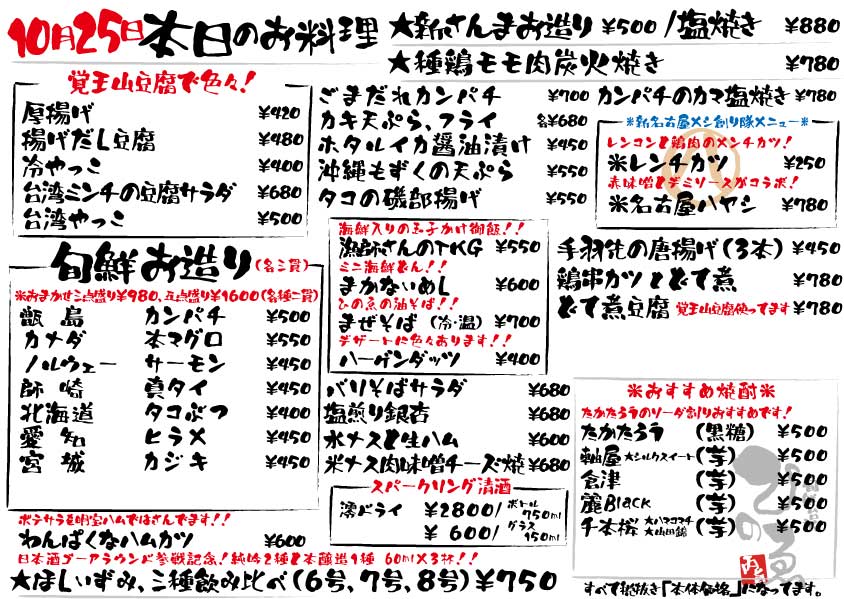 10月25日本日のお料理
★新さんまお造り ¥500 /塩焼き ¥880
★種鶏モモ肉炭火焼き ¥780
覚王山豆腐で色々！
厚揚げ ¥420
揚げだし豆腐 ¥480
冷やっこ ¥400
台湾ミンチの豆腐サラダ ¥680
台湾やっこ ¥500
ごまだれカンパチ ¥700
カキ天ぷら、フライ 各¥680
ホタルイカ醤油漬け ¥450
沖縄もずくの天ぷら ¥550
タコの磯部揚げ ¥550
カンパチのカマ塩焼き ¥780
※新名古屋メシ創り隊メニュー※
レンコンと鶏肉のメンチカツ！
※レンチカツ ¥250
赤味噌とデミソースがコラボ！
※名古屋ハヤシ ¥780
旬鮮お造り(各三貫)
※おまかせ三点盛り¥980、五点盛り¥1600(各種二貫)
甑島 カンパチ ¥500
カナダ 本マグロ ¥550
ノルウェー サーモン ¥450
師崎 真タイ ¥450
北海道 タコぶつ ¥400
愛知 ヒラメ ¥450
宮城 カジキ ¥450
海鮮入りの玉子かけ御飯！！
漁師さんのTKG ¥550
ミニ海鮮どん！！
まかないめし ¥600
ひの魚の油そば！！
まぜそば (冷・温) ¥700
デザートに色々あります！！
ハーゲンダッツ ¥400
手羽先の唐揚げ(3本) ¥450
鶏串カツとどて煮 ¥780
どて煮豆腐 覚王山豆腐使ってます ¥780
バリそばサラダ ¥680
塩煎り銀杏 ¥680
水ナスと生ハム ¥600
米ナス肉味噌チーズ焼 ¥680
スパークリング清酒
澪ドライ ¥2800/ ボトル 750ml
¥600/ グラス 150ml
※おすすめ焼酎※
たかたろうのソーダ割りおすすめです！
たかたろう (黒糖) ¥500
軸屋 ★シルクスイート (芋) ¥500
倉津 (芋) ¥500
麗Black (芋) ¥500
千本桜 ★ハマコマチ ★山田錦 (芋) ¥500
ポテサラを明宝ハムではさんでます！！
わんぱくなハムカツ ¥600
日本酒ゴーアラウンド参戦記念！純吟2種と本醸造1種 60ml×3杯！！
★ほしいずみ、三種飲み比べ(6号、7号、8号)¥750
すべて税抜き「本体価格」になってます。